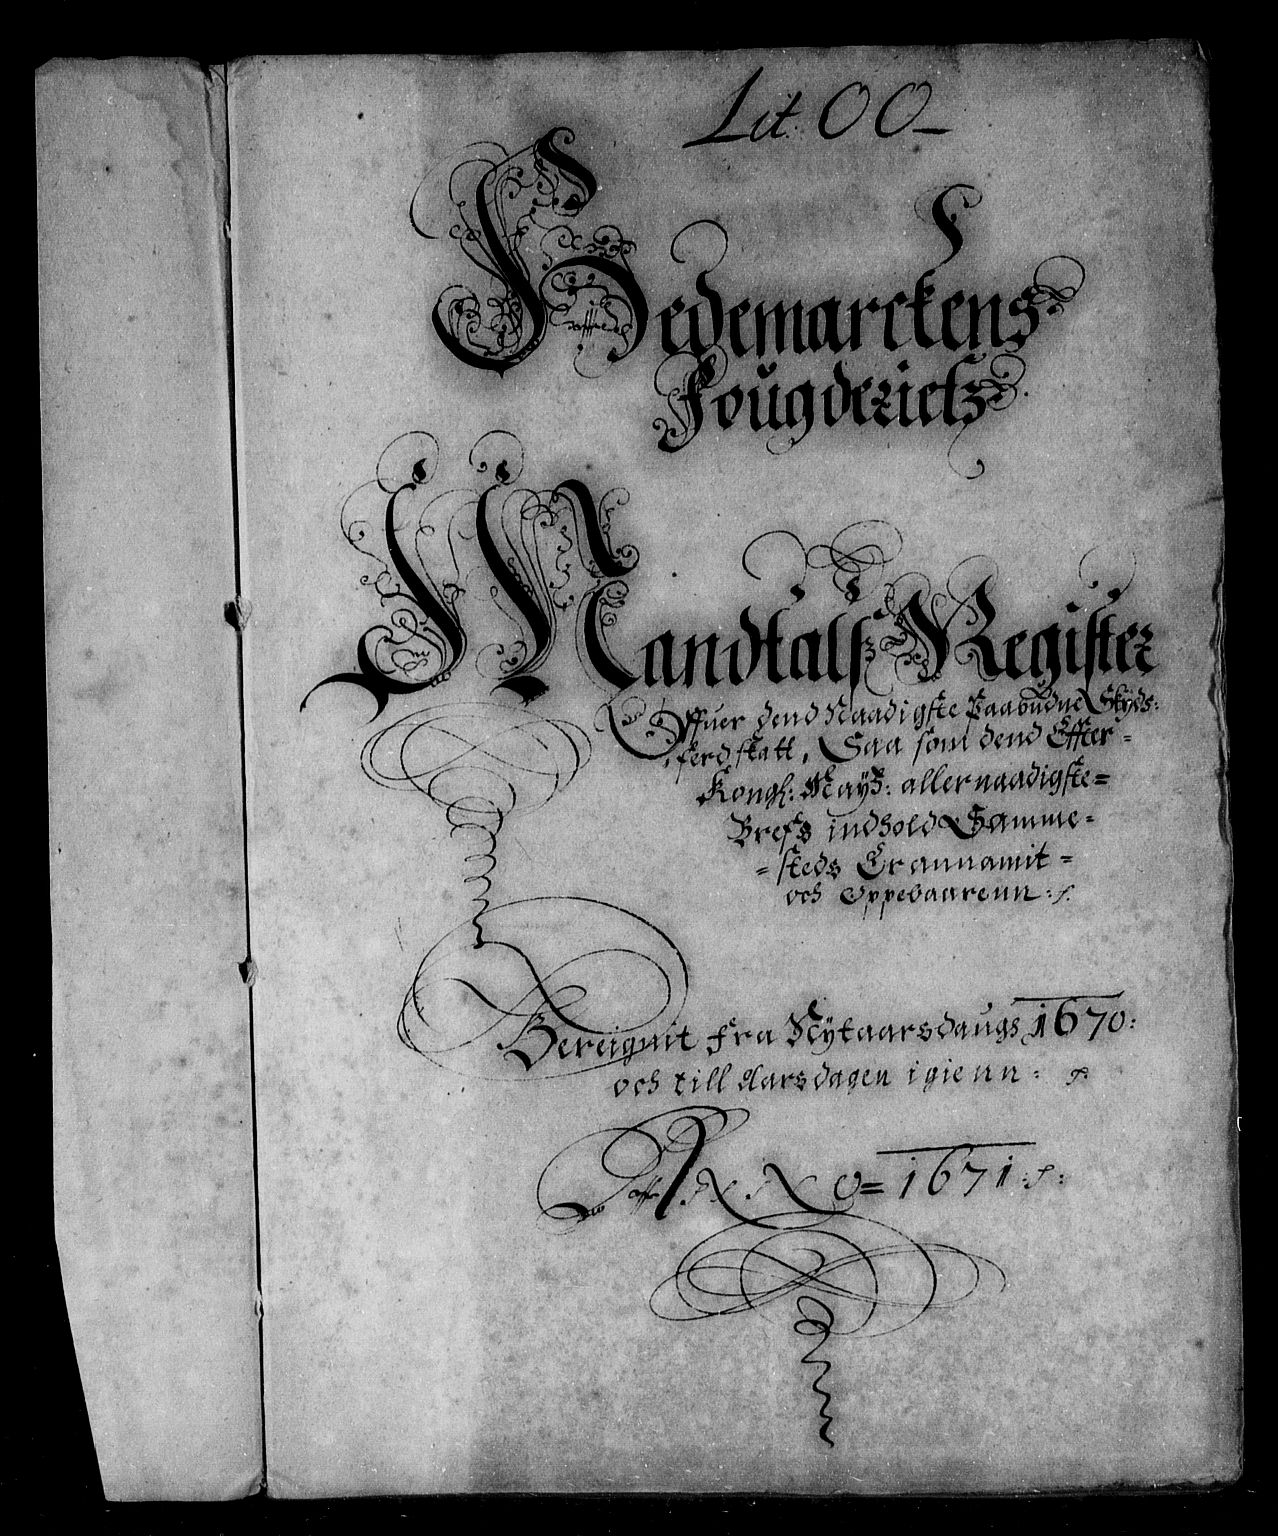 Lit: OO
Hedemarckens
Fougderietz
Mandtalsz Register
Offuer dend Naadigste Paabudne Skyds:
ferdskatt, Saa som dend Effter=
Kongl: Mayß: allernaadigste=
Brefs indhold Samme=
=steds Er annamit=
och Oppebaarenn:
Bereignit fra Nytaarsdaugs 1670:
och till Aarsdagen igienn:
ANNO=1671: